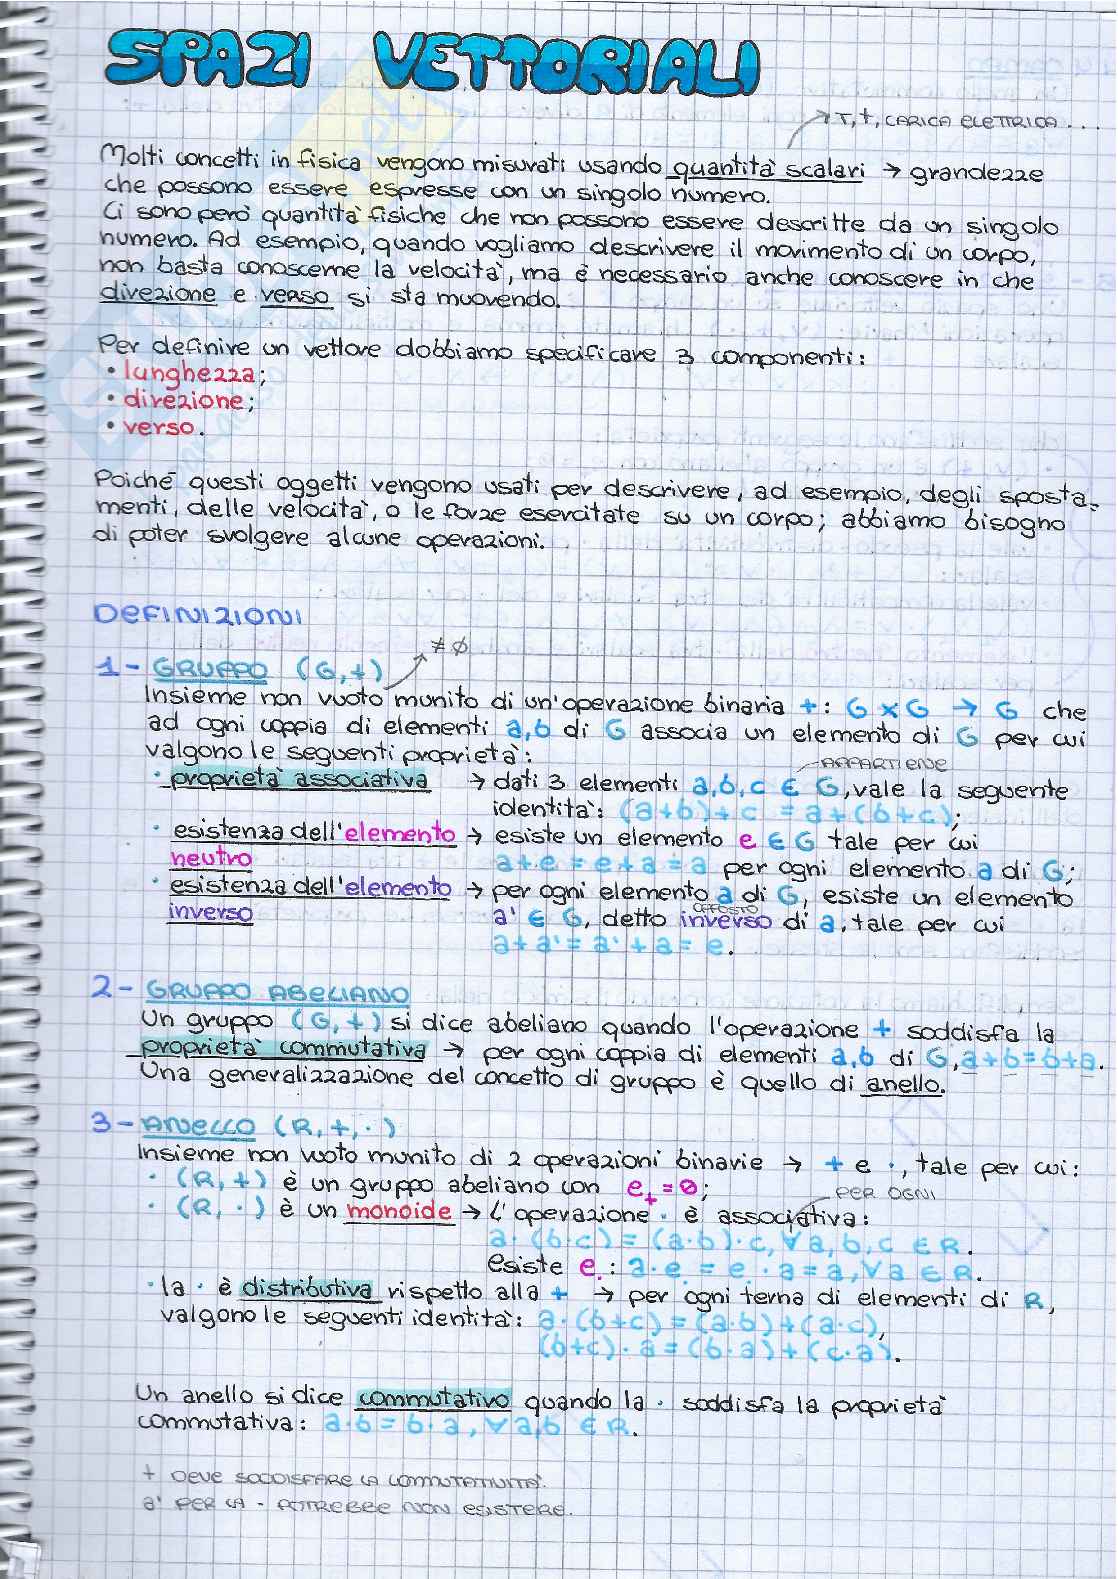 SPAZI VETTORIALI
→ T, t, CARICA ELETTRICA ....
Molti concetti in fisica vengono misurati usando quantità scalari → grandezze
che possono essere espresse con un singolo numero.
Ci sono però quantità fisiche che non possono essere descritte da un singolo
numero. Ad esempio, quando vogliamo descrivere il movimento di un corpo,
non basta conoscerne la velocità, ma è necessario anche conoscere in che
direzione e verso si sta muovendo.
Per definire un vettore dobbiamo specificare 3 componenti:
• lunghezza;
• direzione;
• verso.
Poiché questi oggetti vengono usati per descrivere, ad esempio, degli sposta-
menti, delle velocità, o le forze esercitate su un corpo; abbiamo bisogno
di poter svolgere alcune operazioni.
DEFINIZIONI
≠ ∅
1- GRUPPO (G,+)
Insieme non vuoto munito di un'operazione binaria +: G × G → G che
ad ogni coppia di elementi a,b di G associa un elemento di G per cui
valgono le seguenti proprietà:
APPARTIENE
· proprietà associativa → dati 3 elementi a,b,c ∈ G, vale la seguente
identità: (a+b)+c = a+(b+c);
· esistenza dell'elemento → esiste un elemento e ∈ G tale per cui
neutro a+e = e+a = a per ogni elemento a di G;
· esistenza dell'elemento → per ogni elemento a di G, esiste un elemento
OPPOSTO
inverso a' ∈ G, detto inverso di a, tale per cui
a+a' = a'+a = e.
2- GRUPPO ABELIANO
Un gruppo (G,+) si dice abeliano quando l'operazione + soddisfa la
proprietà commutativa → per ogni coppia di elementi a,b di G, a+b=b+a.
Una generalizzazione del concetto di gruppo è quello di anello.
3- ANELLO (R,+,·)
Insieme non vuoto munito di 2 operazioni binarie → + e ·, tale per cui:
· (R,+) è un gruppo abeliano con e₊=0;
PER OGNI
· (R,·) è un monoide → L'operazione · è associativa:
a·(b·c) = (a·b)·c, ∀a,b,c ∈ R.
esiste e. : a·e. = e.·a = a, ∀a ∈ R.
· la · è distributiva rispetto alla + → per ogni terna di elementi di R,
valgono le seguenti identità: a·(b+c) = (a·b)+(a·c),
(b+c)·a = (b·a)+(c·a).
Un anello si dice commutativo quando la · soddisfa la proprietà
commutativa: a·b = b·a, ∀a,b ∈ R.
+ DEVE SODDISFARE LA COMMUTATIVITÀ.
a' PER LA · POTREBBE NON ESISTERE.